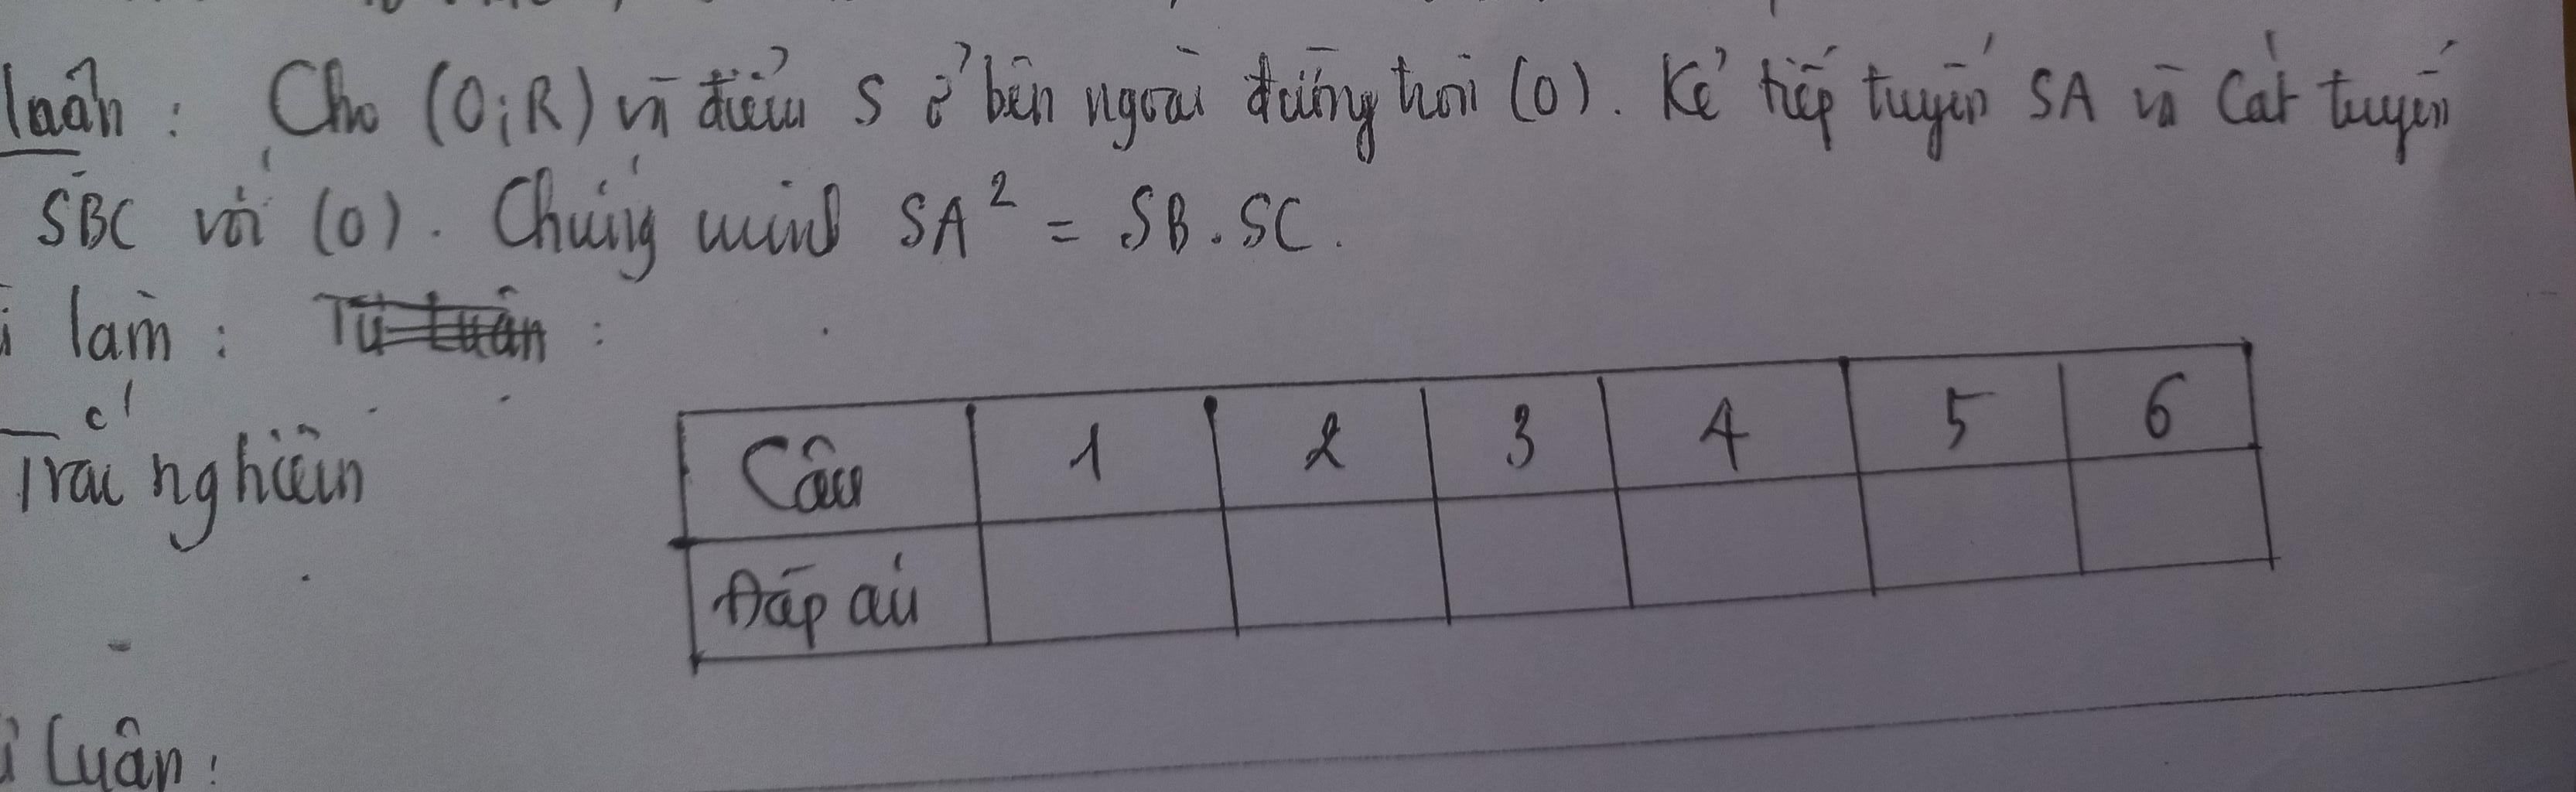 luận : Cho (O;R) và điểm S ở bên ngoài đường tròn (O). Kẻ tiếp tuyến SA và cát tuyến
SBC với (O). Chứng minh SA² = SB.SC.
i làm : Tự luận :
Trắc nghiệm
Câu 1 2 3 4 5 6
Đáp án
luận :